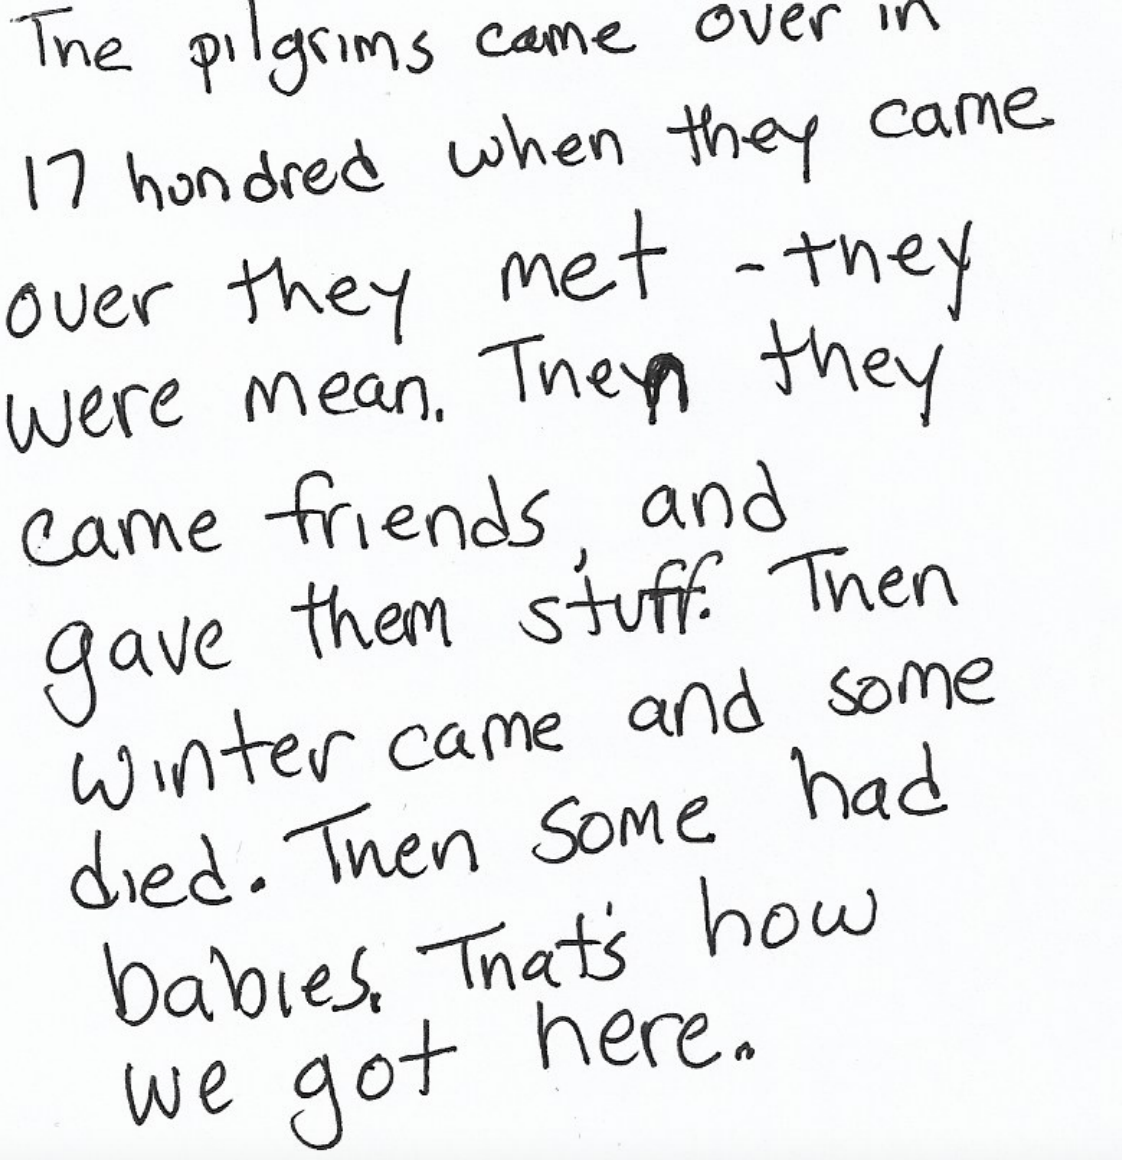 The pilgrims came over in
17 hundred when they came
over they met - they
were mean. Then they
came friends, and
gave them stuff. Then
winter came and some
died. Then some had
babies. That's how
we got here.